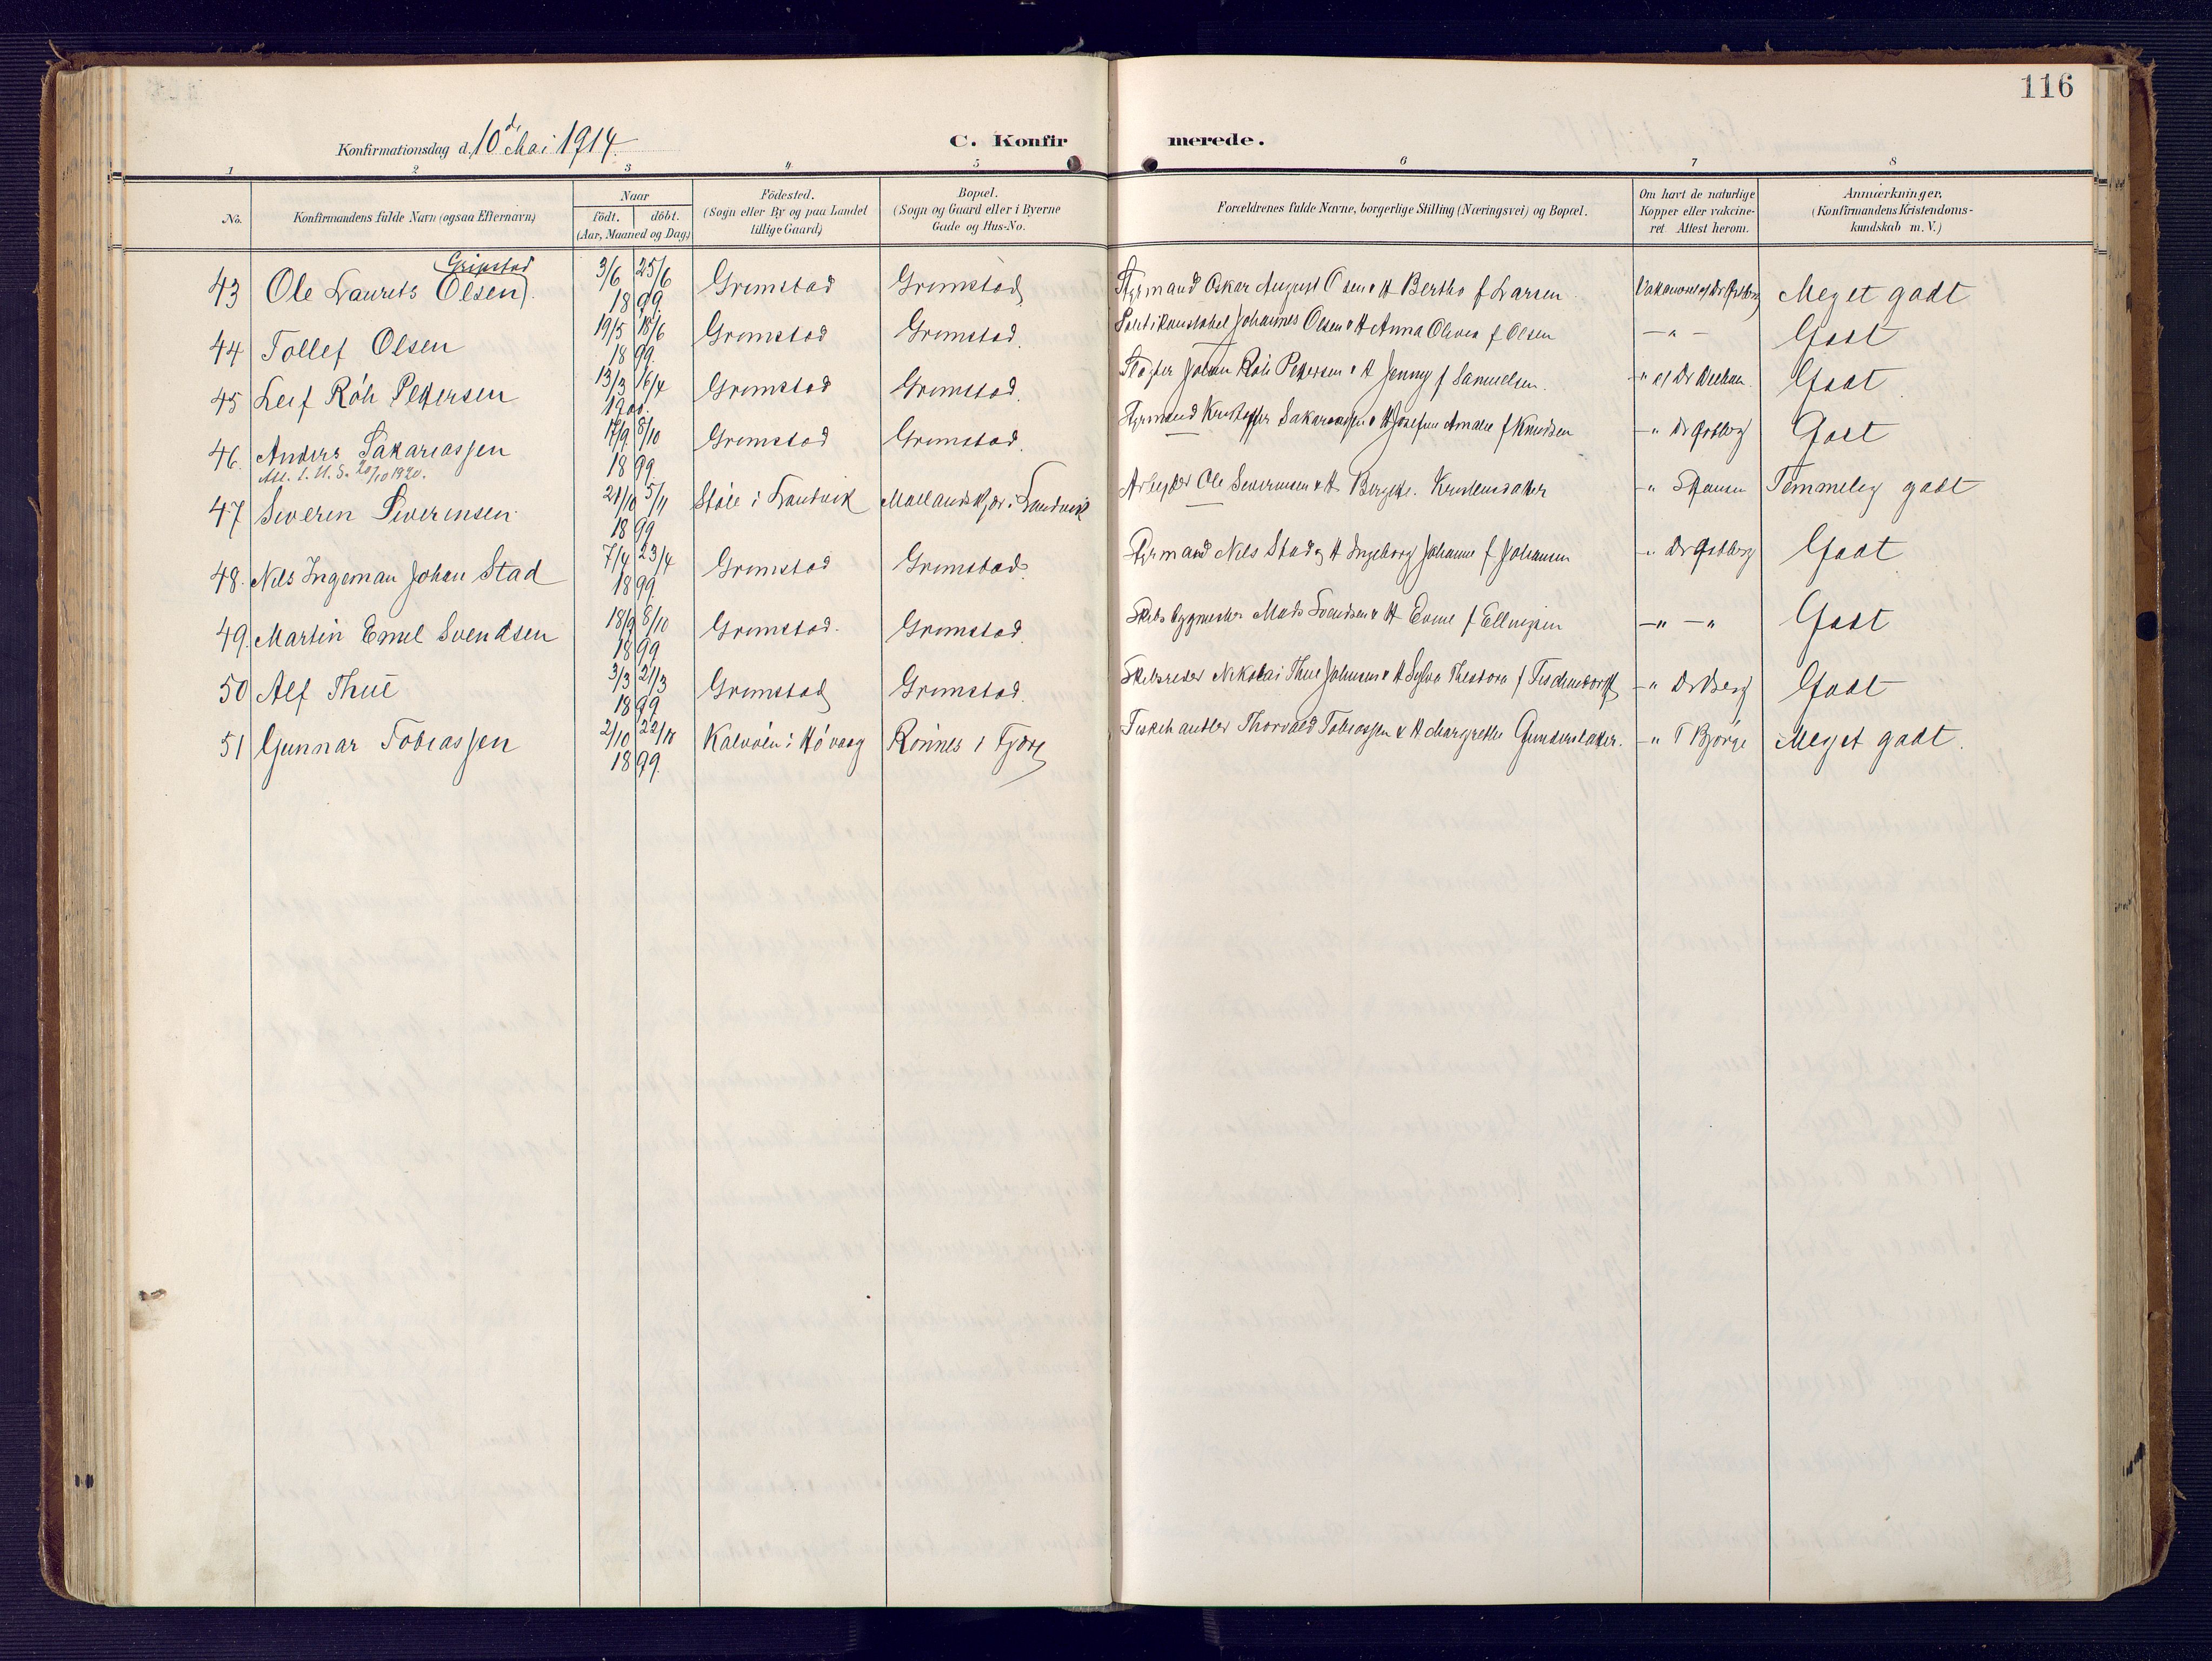 116
Konfirmationsdag d. 10d Mai 1914.
C. Konfir merede.
1 2 3 4 5 6 7 8
No. Konfirmandens fulde Navn (ogsaa Efternavn) Naar födt. döbt. (Aar, Maaned og Dag) Födested. (Sogn eller By og paa Landet tillige Gaard) Bopæl. (Sogn og Gaard eller i Byerne Gade og Hus-No. Forældrenes fulde Navne, borgerlige Stilling (Næringsvei) og Bopæl. Om havt de naturlige Kopper eller vakcineret. Attest herom. Anmærkninger, (Konfirmandens Kristendomskundskab m. V.)
Gripstad
43 Ole Laurits Olsen). 3/6 25/6 1899 Grimstad Grimstad Styrmand Oskar August Olsen & H Bertha f Larsen Meget godt
44 Tollef Olsen 19/5 18/6 1899. Grimstad Grimstad. Johannes Olsen & H Anna Olivia f Olsen — " — Godt
45 Leif Röh Pedersen 13/3 16/4 1900. Grimstad Grimstad. Johan Röh Pedersen & H Jenny f Samuelsen. Godt
46. Anders Sakariassen 17/9 8/10 1899 Grimstad Grimstad. Styrmand Kristoffer Sakariassen & H Josefine Amalie f Knudsen Godt
Att. t. U. S. 20/10 1920.
47 Severin Severinsen 21/10 5/11 1899 Støle i Landvik Mollandskjær i Landvik Arbeider Ole Severinsen & H Temmelig godt
48. Nils Ingeman Johan Stad 7/4 23/4 1899. Grimstad Grimstad. Styrmand Nils Stad & H Ingeborg Johanne f Johansen Godt
49. Martin Emil Svendsen 18/9 8/10 1899 Grimstad. Grimstad. Skibsbygmester Mads Svendsen & H f Ellingsen — " — " Godt
50 Alf Thue 3/3 21/3 1899 Grimstad Grimstad. Skibsreder Nikolai Thue Johnsen & H Sylva Theodora f Tischendorff — " Dr Berg Godt
51 Gunnar Tobiassen 2/10 22/10 1899. Kalvöen i Hövaag Rönnes i Fjære Fiskehandler Thorvald Tobiassen & H Margrethe Gundersdatter. — " T Bjorge Meget godt.